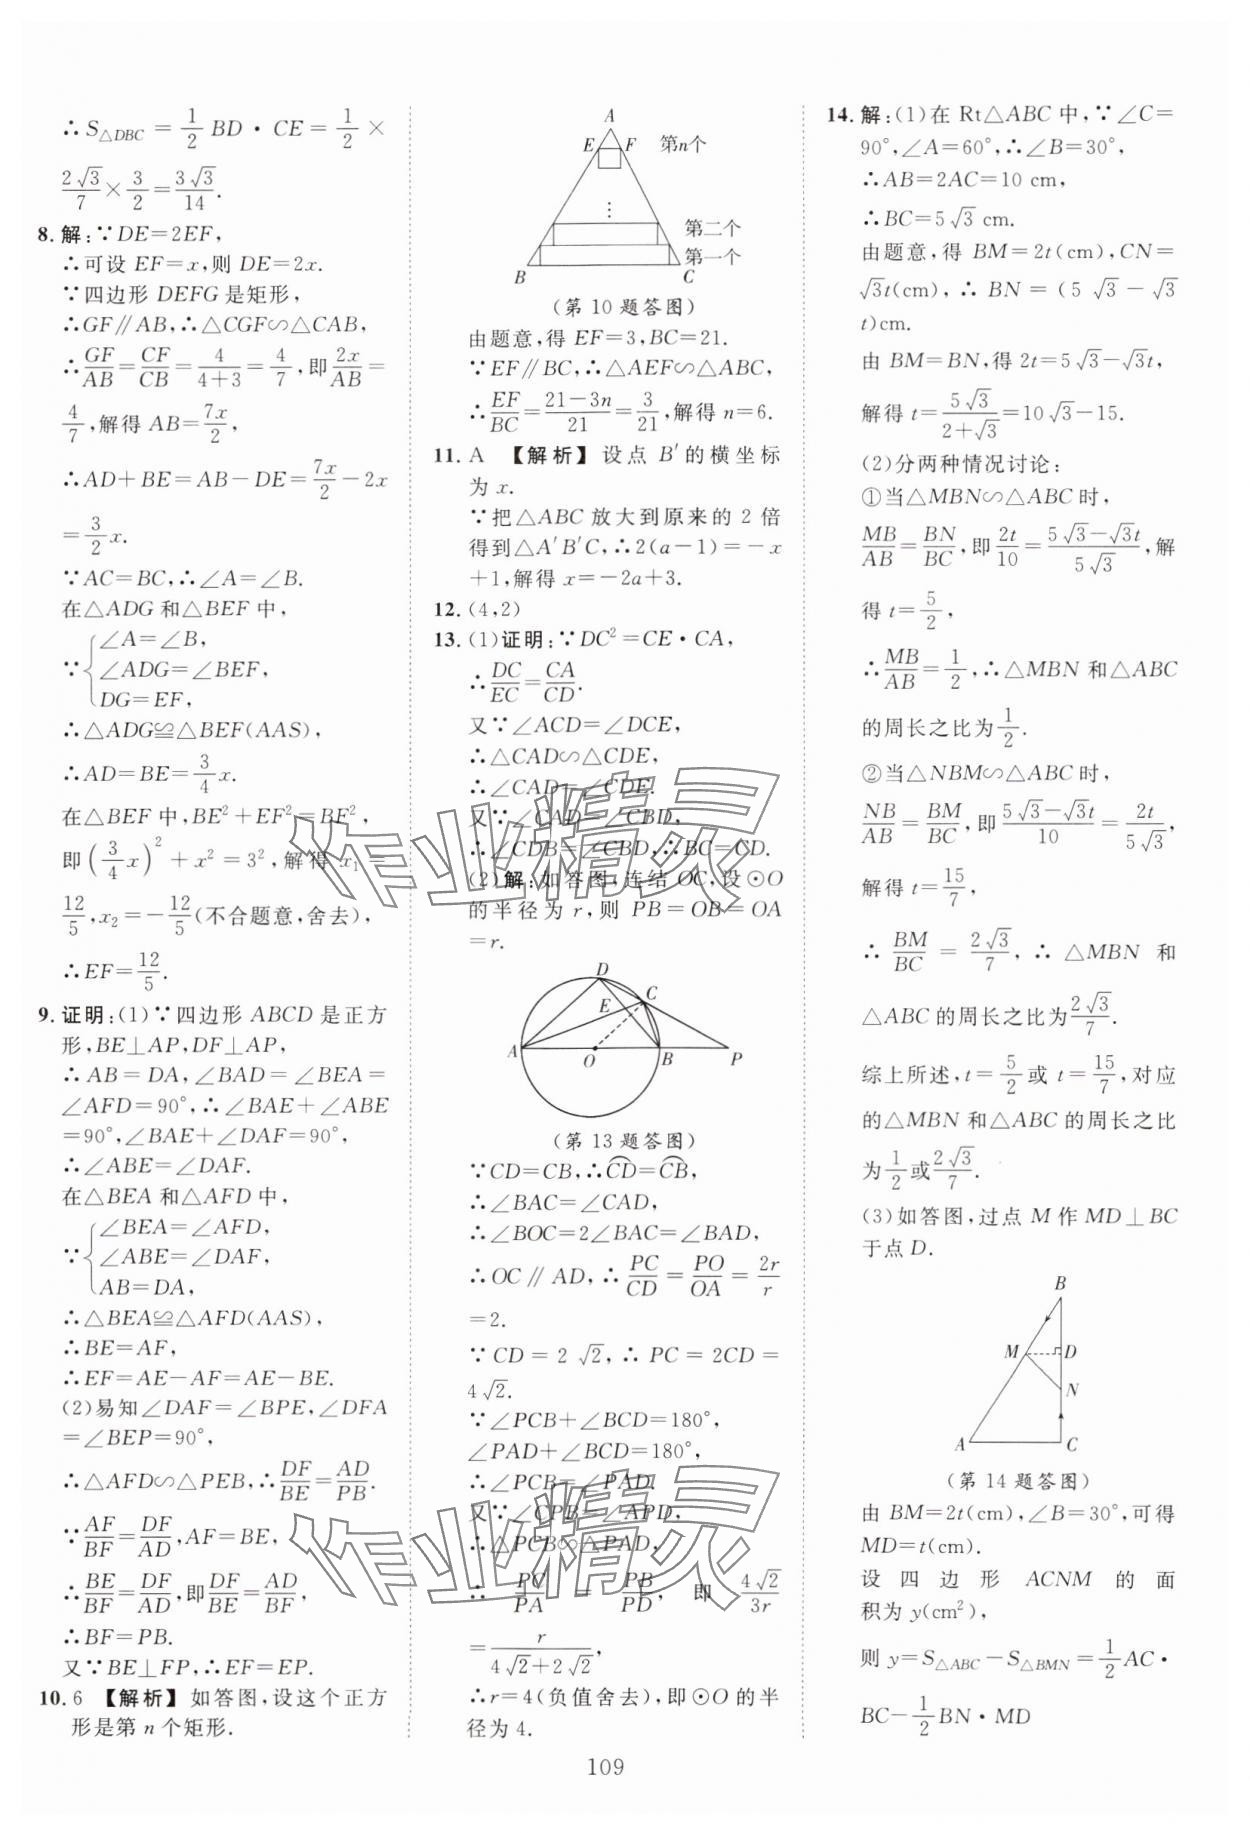 ∴S△DBC=1/2 BD·CE=1/2×
2√3/7×3/2=3√3/14.
8. 解:∵DE=2EF,
∴可设 EF=x,则 DE=2x.
∵四边形 DEFG 是矩形,
∴GF∥AB,∴△CGF∽△CAB,
∴GF/AB=CF/CB=4/(4+3)=4/7,即2x/AB=
4/7,解得 AB=7x/2,
∴AD+BE=AB-DE=7x/2-2x
=3/2 x.
∵AC=BC,∴∠A=∠B.
在△ADG 和△BEF 中,
∵{∠A=∠B,
∠ADG=∠BEF,
DG=EF,
∴△ADG≌△BEF(AAS),
∴AD=BE=3/4 x.
在△BEF 中,BE²+EF²=BF²,
即(3/4 x)²+x²=3²,解得 x₁=
12/5,x₂=-12/5(不合题意,舍去),
∴EF=12/5.
9. 证明:(1)∵四边形 ABCD 是正方
形,BE⊥AP,DF⊥AP,
∴AB=DA,∠BAD=∠BEA=
∠AFD=90°,∴∠BAE+∠ABE
=90°,∠BAE+∠DAF=90°,
∴∠ABE=∠DAF.
在△BEA 和△AFD 中,
∵{∠BEA=∠AFD,
∠ABE=∠DAF,
AB=DA,
∴△BEA≌△AFD(AAS),
∴BE=AF,
∴EF=AE-AF=AE-BE.
(2)易知∠DAF=∠BPE,∠DFA
=∠BEP=90°,
∴△AFD∽△PEB,∴DF/BE=AD/PB.
∵AF/BF=DF/AD,AF=BE,
∴BE/BF=DF/AD,即DF/BE=AD/BF,
∴BF=PB.
又∵BE⊥FP,∴EF=EP.
10. 6 【解析】如答图,设这个正方
形是第 n 个矩形.
A
E F 第n个
⋮
第二个
第一个
B C
(第 10 题答图)
由题意,得 EF=3,BC=21.
∵EF∥BC,∴△AEF∽△ABC,
∴EF/BC=(21-3n)/21=3/21,解得 n=6.
11. A 【解析】设点 B′的横坐标
为 x.
∵把△ABC 放大到原来的 2 倍
得到△A′B′C,∴2(a-1)=-x
+1,解得 x=-2a+3.
12. (4,2)
13. (1)证明:∵DC²=CE·CA,
∴DC/EC=CA/CD.
又∵∠ACD=∠DCE,
∴△CAD∽△CDE,
∴∠CAD=∠CDE.
又∵∠CAD=∠CBD,
∴∠CDB=∠CBD,∴BC=CD.
(2)解:如答图,连结 OC,设⊙O
的半径为 r,则 PB=OB=OA
=r.
D
E C
A O B P
(第 13 题答图)
∵CD=CB,∴C͡D=C͡B,
∴∠BAC=∠CAD,
∴∠BOC=2∠BAC=∠BAD,
∴OC∥AD,∴PC/CD=PO/OA=2r/r
=2.
∵CD=2√2,∴PC=2CD=
4√2.
∵∠PCB+∠BCD=180°,
∠PAD+∠BCD=180°,
∴∠PCB=∠PAD.
又∵∠CPB=∠APD,
∴△PCB∽△PAD,
∴PC/PA=PB/PD,即4√2/3r
=r/(4√2+2√2),
∴r=4(负值舍去),即⊙O 的半
径为 4.
14. 解:(1)在 Rt△ABC 中,∵∠C=
90°,∠A=60°,∴∠B=30°,
∴AB=2AC=10 cm,
∴BC=5√3 cm.
由题意,得 BM=2t(cm),CN=
√3t(cm),∴BN=(5√3-√3
t)cm.
由 BM=BN,得 2t=5√3-√3t,
解得 t=5√3/(2+√3)=10√3-15.
(2)分两种情况讨论:
①当△MBN∽△ABC 时,
MB/AB=BN/BC,即2t/10=(5√3-√3t)/5√3,解
得 t=5/2,
∴MB/AB=1/2,∴△MBN 和△ABC
的周长之比为1/2.
②当△NBM∽△ABC 时,
NB/AB=BM/BC,即(5√3-√3t)/10=2t/5√3,
解得 t=15/7,
∴BM/BC=2√3/7,∴△MBN 和
△ABC 的周长之比为2√3/7.
综上所述,t=5/2或 t=15/7,对应
的△MBN 和△ABC 的周长之比
为1/2或2√3/7.
(3)如答图,过点 M 作 MD⊥BC
于点 D.
B
M D
N
A C
(第 14 题答图)
由 BM=2t(cm),∠B=30°,可得
MD=t(cm).
设四边形 ACNM 的面
积为 y(cm²),
则 y=S△ABC-S△BMN=1/2 AC·
BC-1/2 BN·MD
109
作业精灵
作业精灵